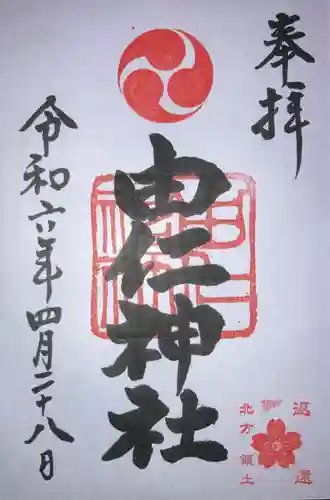 奉拝
由仁神社
令和六年四月二十八日
返還
北方領土